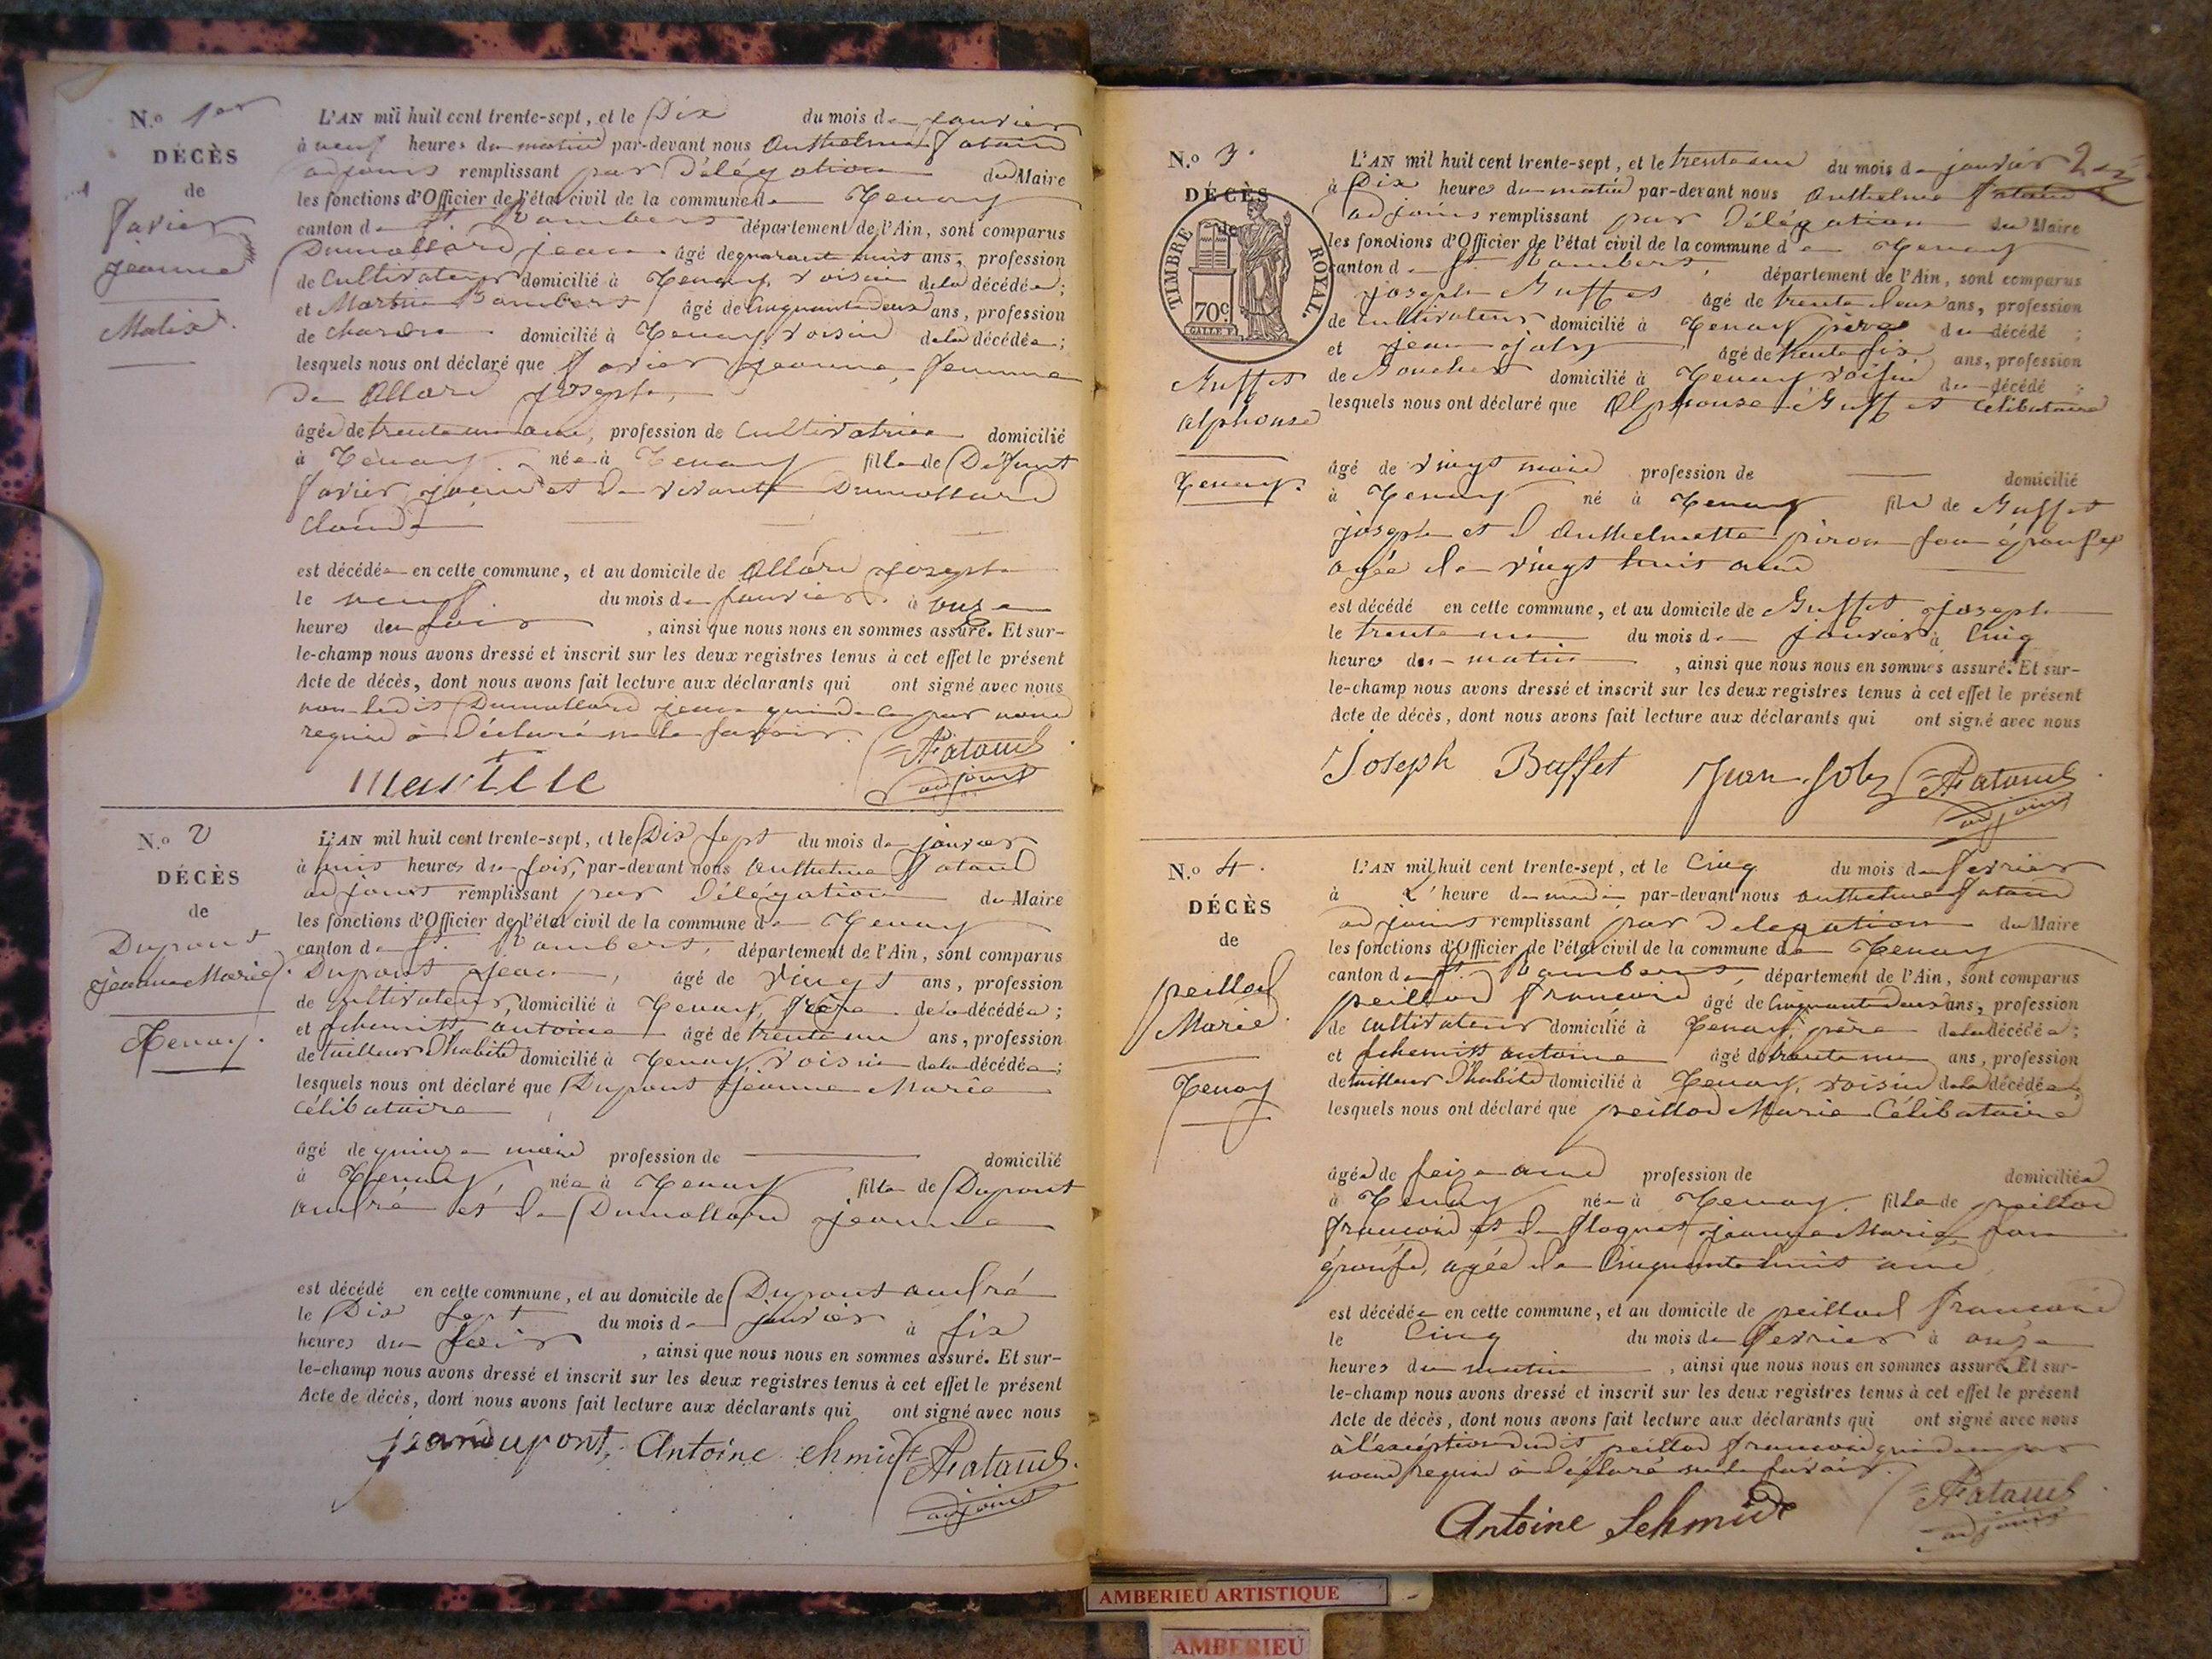 N.o 1er
DÉCÈS
de
Favier
jeanne
L'AN mil huit cent trente-sept, et le Dix du mois de janvier
à neuf heures du matin par-devant nous Anthelme
adjoint remplissant par Délégation du Maire
les fonctions d'Officier de l'état civil de la commune de Tenay
canton de St Rambert département de l'Ain, sont comparus
Dumollard jean âgé de quarante huit ans, profession
de Cultivateur domicilié à Tenay voisin de la décédée;
et Martin Rambert âgé de Cinquante deux ans, profession
de domicilié à Tenay, voisin de la décédée;
lesquels nous ont déclaré que Favier jeanne, femme
De Allard joseph,
âgée de trente un ans, profession de Cultivatrice domicilié
à Tenay née à Tenay fille de Défunt
Favier et De vivante Dumollard
Clauda
est décédée en cette commune, et au domicile de Allard joseph
le neuf du mois de janvier à onze
heures du soir, ainsi que nous nous en sommes assuré. Et sur-
le-champ nous avons dressé et inscrit sur les deux registres tenus à cet effet le présent
Acte de décès, dont nous avons fait lecture aux déclarants qui ont signé avec nous
non ledit Dumollard jean qui De ce par nous
requis à Déclaré ne le savoir.
adjoint
N.o 2
DÉCÈS
de
Dupont
jeanne Marie
Tenay.
L'AN mil huit cent trente-sept, et le Dix sept du mois de janvier
à huit heures du soir, par-devant nous Anthelme
adjoint remplissant par Délégation du Maire
les fonctions d'Officier de l'état civil de la commune de Tenay
canton de St Rambert, département de l'Ain, sont comparus
Dupont jean, âgé de vingt ans, profession
de Cultivateur, domicilié à Tenay, frère de la décédée;
et Schemitt antoine âgé de trente un ans, profession
de tailleur D'habits domicilié à Tenay, voisin de la décédée;
lesquels nous ont déclaré que Dupont jeanne Marie
Célibataire
âgé de quinze mois profession de domicilié
à Tenay, née à Tenay fille de Dupont
andré et De Dumollard jeanne
est décédé en cette commune, et au domicile de Dupont andré
le Dix sept du mois de janvier à six
heures du soir, ainsi que nous nous en sommes assuré. Et sur-
le-champ nous avons dressé et inscrit sur les deux registres tenus à cet effet le présent
Acte de décès, dont nous avons fait lecture aux déclarants qui ont signé avec nous
jean dupont, Antoine
adjoint
N.o 3.
DÉCÈS
de
TIMBRE ROYAL.
70c.
Buffet
alphonse
Tenay.
L'AN mil huit cent trente-sept, et le trente un du mois de janvier
à Dix heures du matin par-devant nous Anthelme
adjoint remplissant par Délégation du Maire
les fonctions d'Officier de l'état civil de la commune de Tenay
canton de St Rambert, département de l'Ain, sont comparus
joseph Buffet âgé de trente Deux ans, profession
de Cultivateur domicilié à Tenay père du décédé;
et jean joly âgé de trente six ans, profession
de Boucher domicilié à Tenay, voisin du décédé;
lesquels nous ont déclaré que Alphonse Buffet Célibataire
âgé de vingt mois profession de domicilié
à Tenay né à Tenay fils de Buffet
joseph et D'Anthelmette piron son épouse
agée de vingt huit ans
est décédé en cette commune, et au domicile de Buffet joseph
le trente un du mois de janvier à Cinq
heures du matin, ainsi que nous nous en sommes assuré. Et sur-
le-champ nous avons dressé et inscrit sur les deux registres tenus à cet effet le présent
Acte de décès, dont nous avons fait lecture aux déclarants qui ont signé avec nous
Joseph Buffet Jean Joly
adjoint
N.o 4.
DÉCÈS
de
peillod
Marie.
Tenay
L'AN mil huit cent trente-sept, et le Cinq du mois de fevrier
à L'heure de midi par-devant nous anthelme
adjoint remplissant par Delegation du Maire
les fonctions d'Officier de l'état civil de la commune de Tenay
canton de St Rambert, département de l'Ain, sont comparus
peillod francois âgé de Cinquante deux ans, profession
de Cultivateur domicilié à Tenay père de la décédée;
et Schemitt antoine âgé de trente un ans, profession
de tailleur D'habits domicilié à Tenay, voisin de la décédée;
lesquels nous ont déclaré que peillod Marie Célibataire
âgée de seize ans profession de domiciliée
à Tenay née à Tenay fille de peillod
francois et De jeanne Marie, son
épouse, agée de Cinquante huit ans
est décédée en cette commune, et au domicile de peillod francois
le Cinq du mois de fevrier à onze
heures du matin, ainsi que nous nous en sommes assuré. Et sur-
le-champ nous avons dressé et inscrit sur les deux registres tenus à cet effet le présent
Acte de décès, dont nous avons fait lecture aux déclarants qui ont signé avec nous
à l'exception dudit peillod francois qui de ce par
nous requis à Déclaré ne le savoir.
Antoine Schmidt
adjoint
AMBERIEU ARTISTIQUE
AMBERIEU